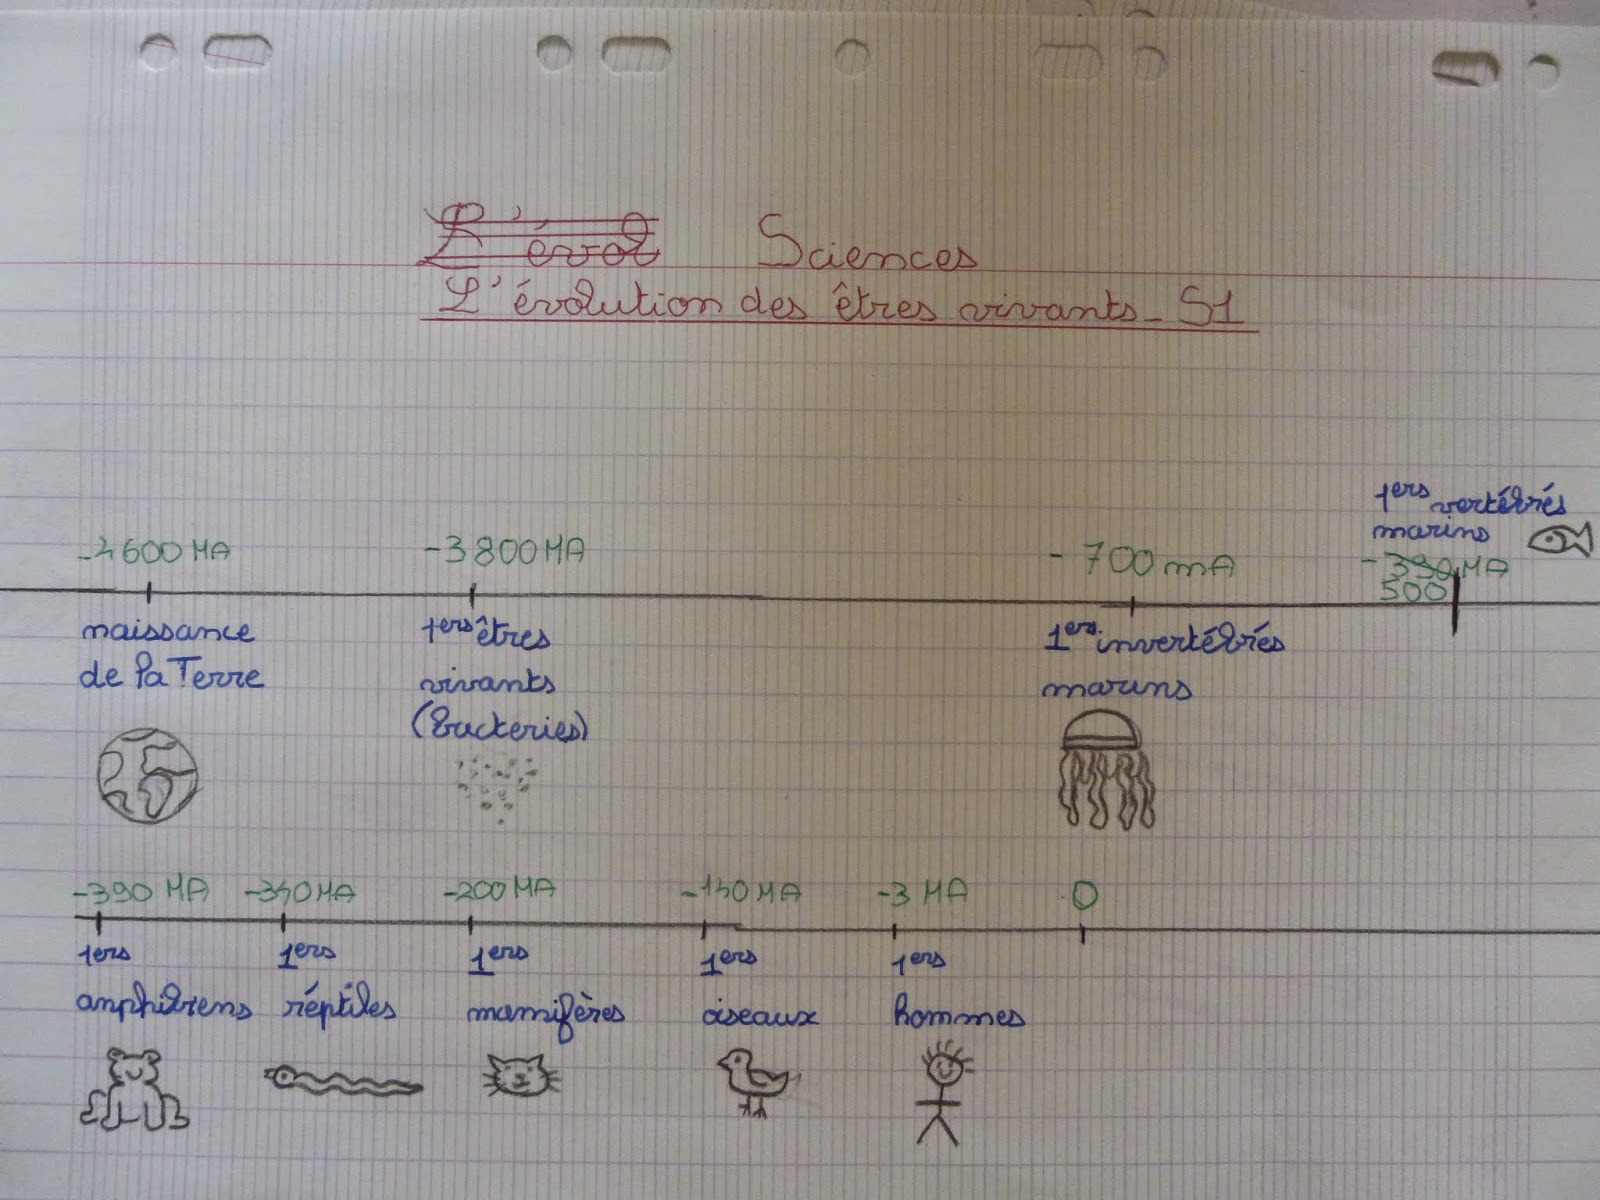 L'évol Sciences
L'évolution des êtres vivants - S1
1ers vertébrés
marins
-4600 MA -3800 MA -700 mA -390 MA
500
naissance 1ers êtres 1ers invertébrés
de la Terre vivants marins
(backeries)
-390 MA -340 MA -200 MA -140 MA -3 MA 0
1ers 1ers 1ers 1ers 1ers
anphibiens réptiles mamifères oiseaux hommes